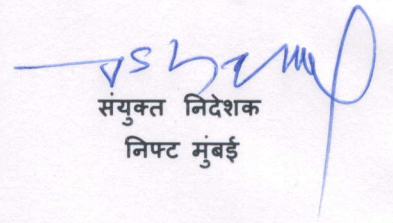 संयुक्त निदेशक
निफ्ट मुंबई